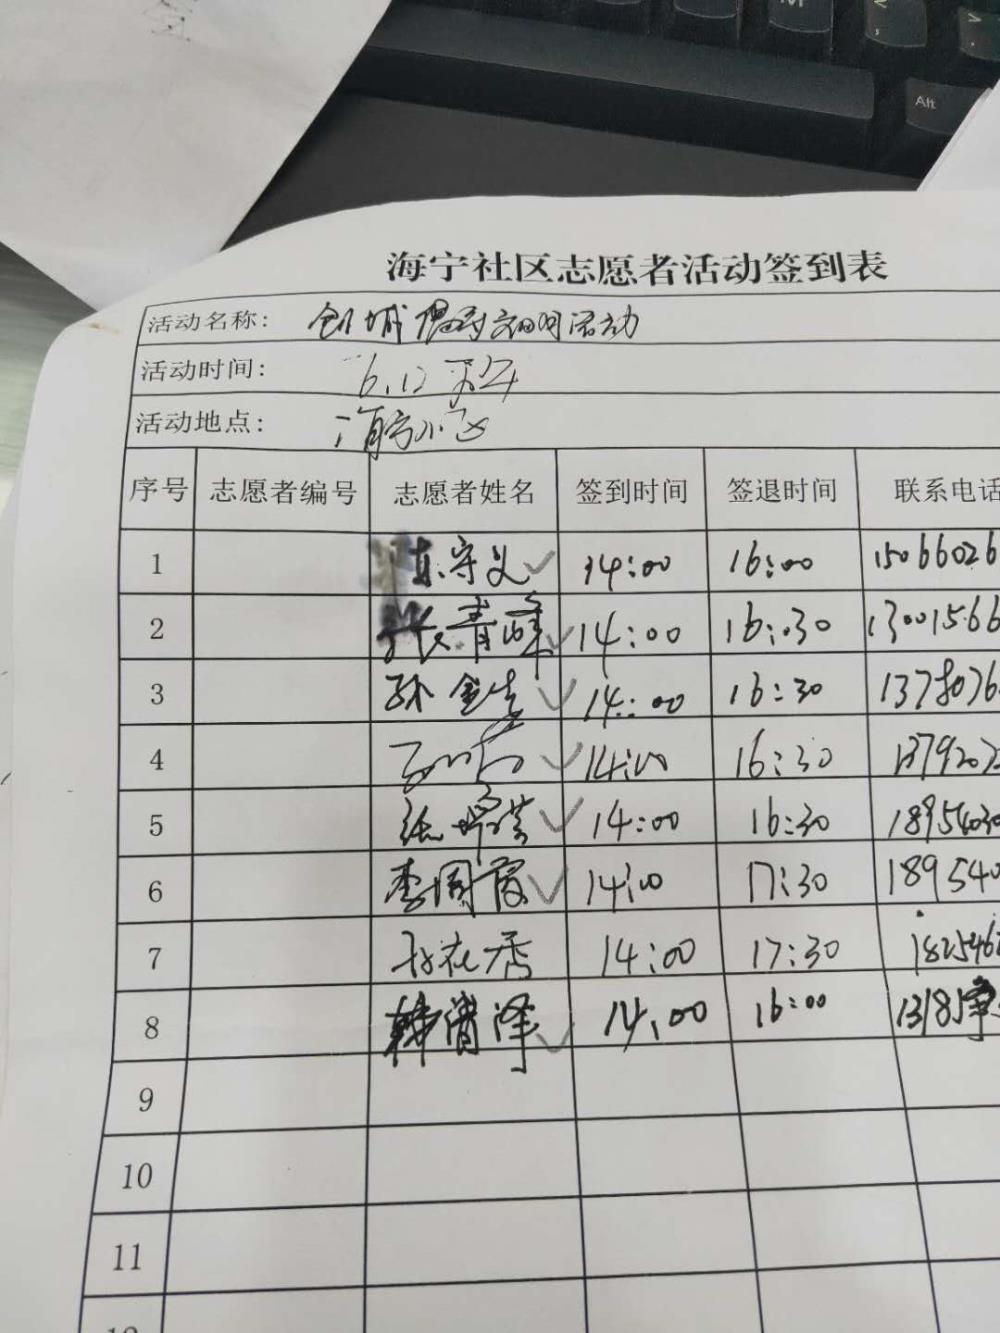 海宁社区志愿者活动签到表
活动名称: 创城 文明活动
活动时间: 6.12 下午
活动地点: 海宁小区
序号 志愿者编号 志愿者姓名 签到时间 签退时间 联系电话
1 守义 14:00 16:00 15066026
2 张青峰 14:00 16:30 13001566
3 孙金生 14:00 16:30 1378076
4 14:00 16:30 1379202
5 张 14:00 16:30 18954030
6 李周霞 14:00 17:30 189540
7 花香 14:00 17:30 1825462
8 韩肖泽 14:00 16:00 13185
9
10
11
Alt